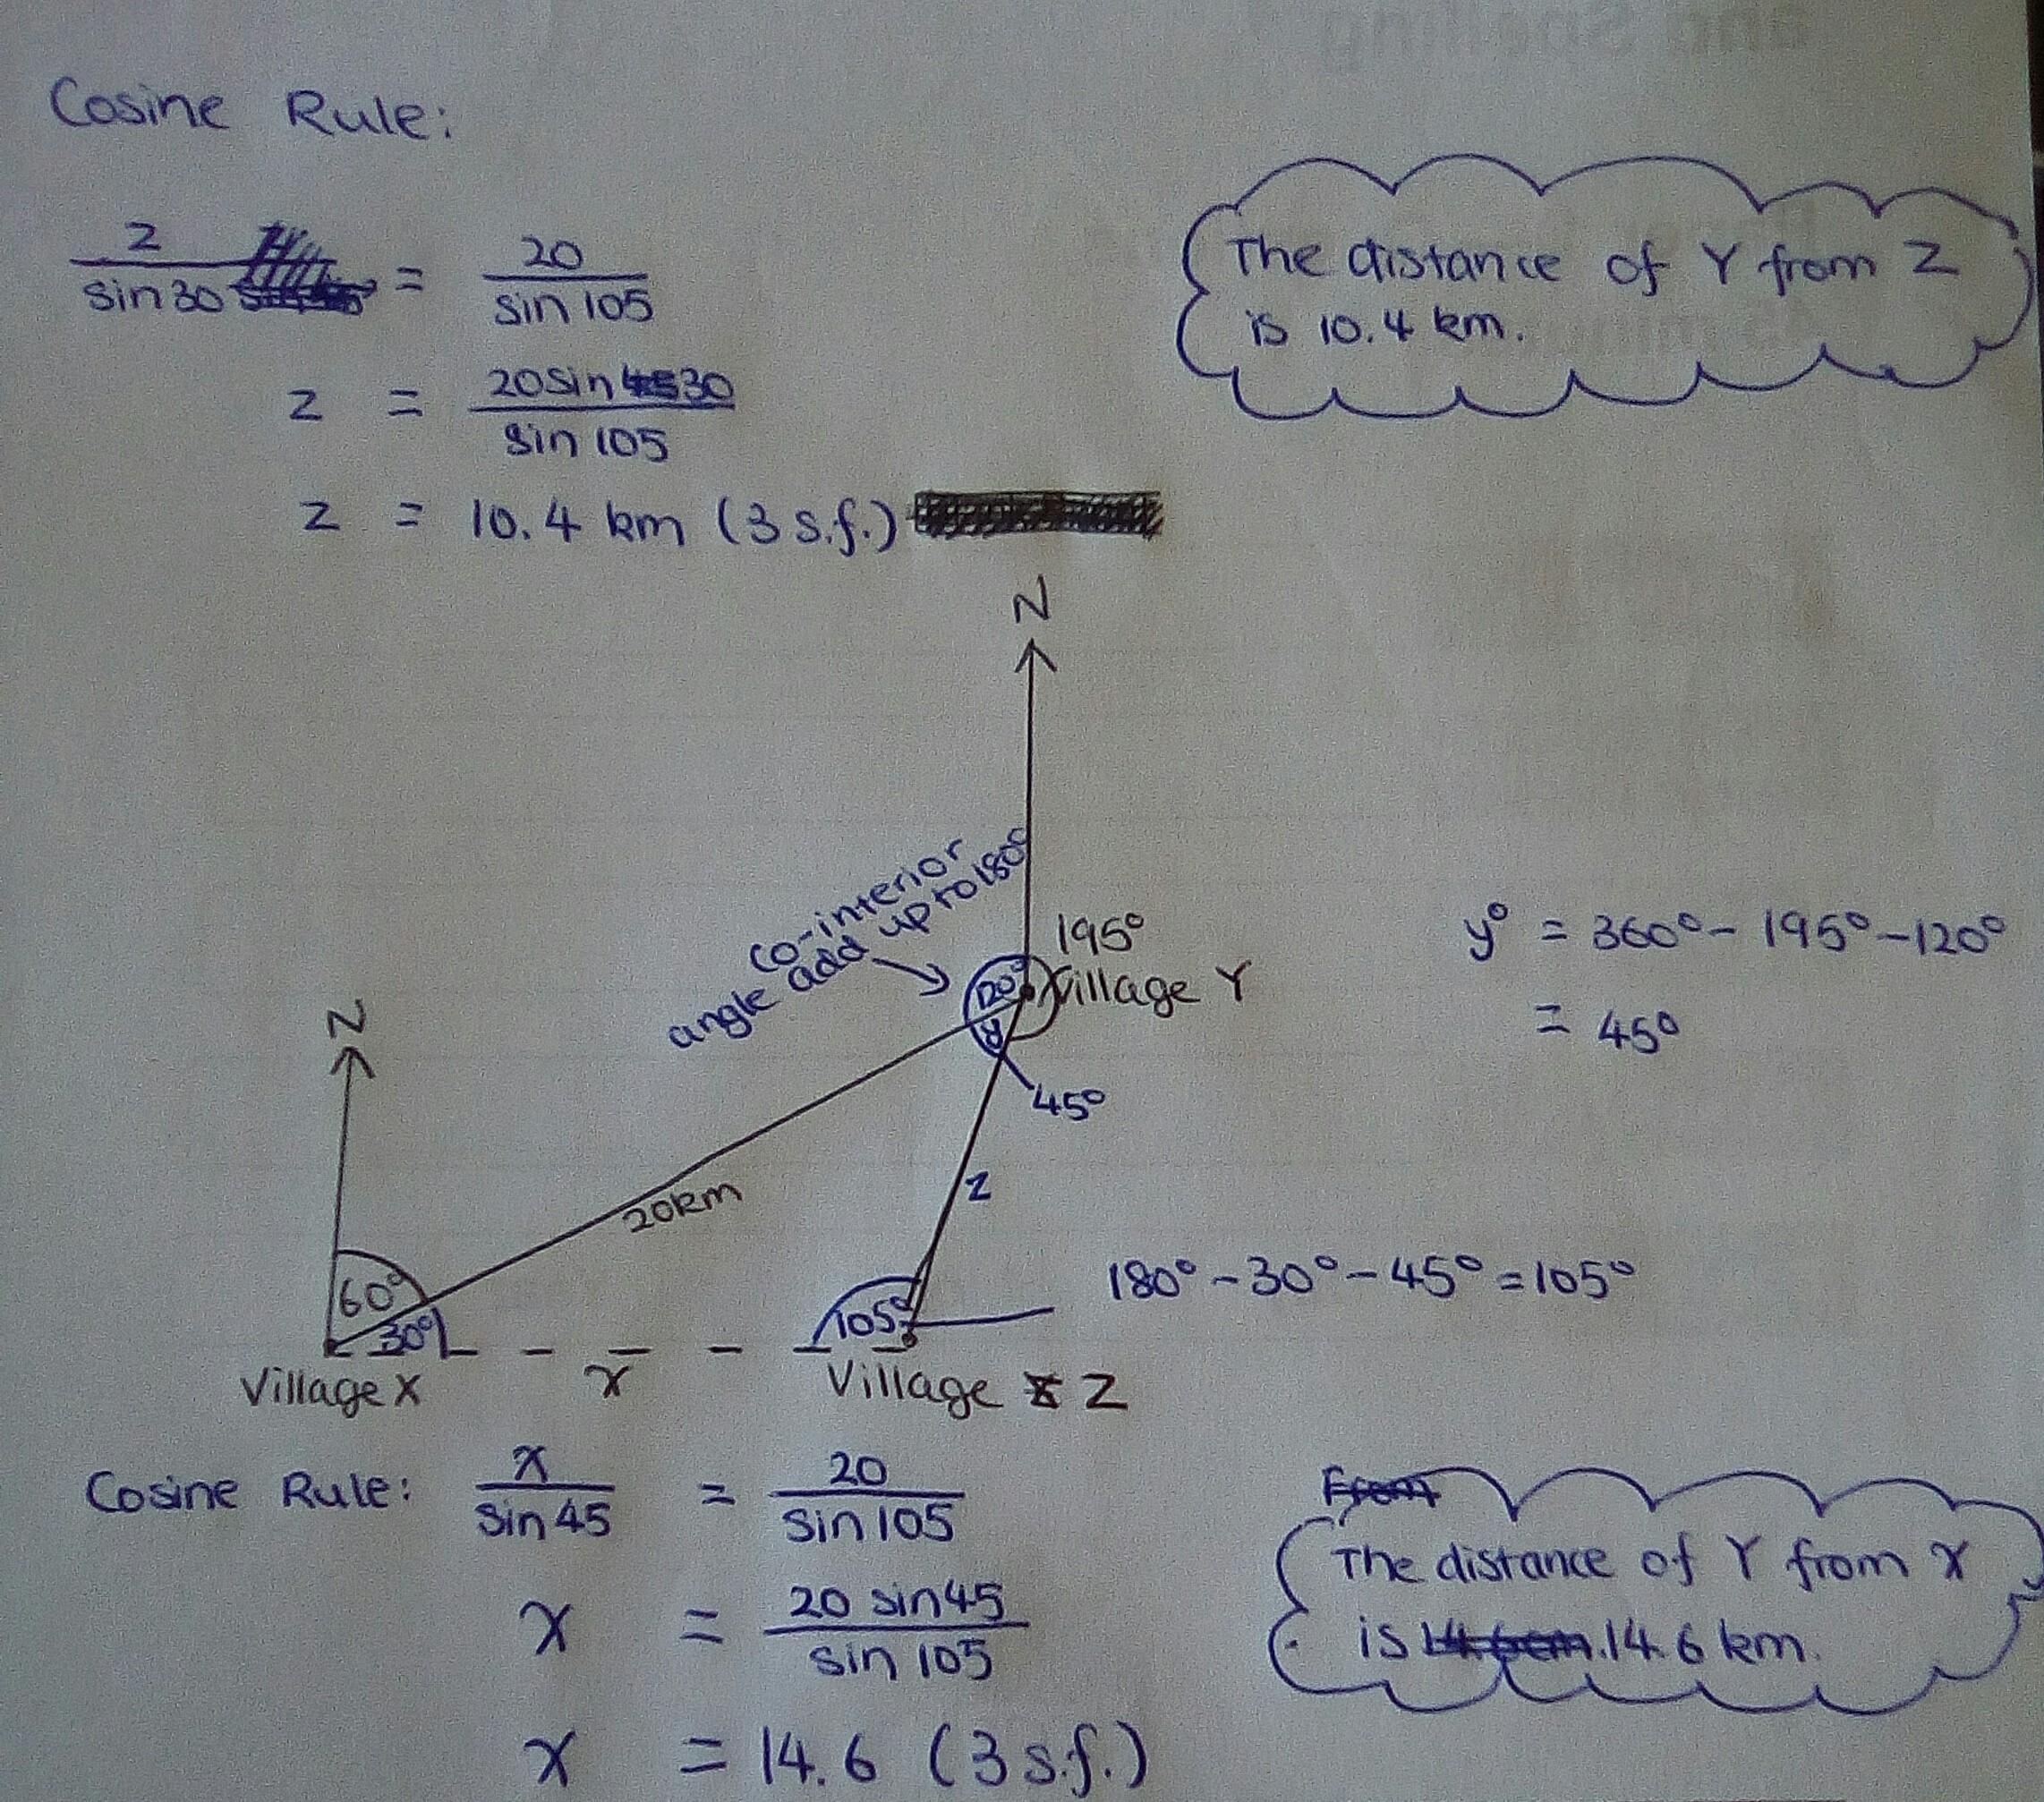 Cosine Rule:
z/sin 30 = 20/sin 105
z = 20 sin 30/sin 105
z = 10.4 km (3 s.f.)
The distance of Y from Z
is 10.4 km.
N
co-interior
angle add up to 180°
195°
120°
Village Y
y
45°
y° = 360° - 195° - 120°
= 45°
N
20km
z
60°
30°
105°
180° - 30° - 45° = 105°
Village X
x
Village Z
Cosine Rule: x/sin 45 = 20/sin 105
x = 20 sin 45/sin 105
x = 14.6 (3 s.f.)
From
The distance of Y from X
is 14.6cm. 14.6 km.